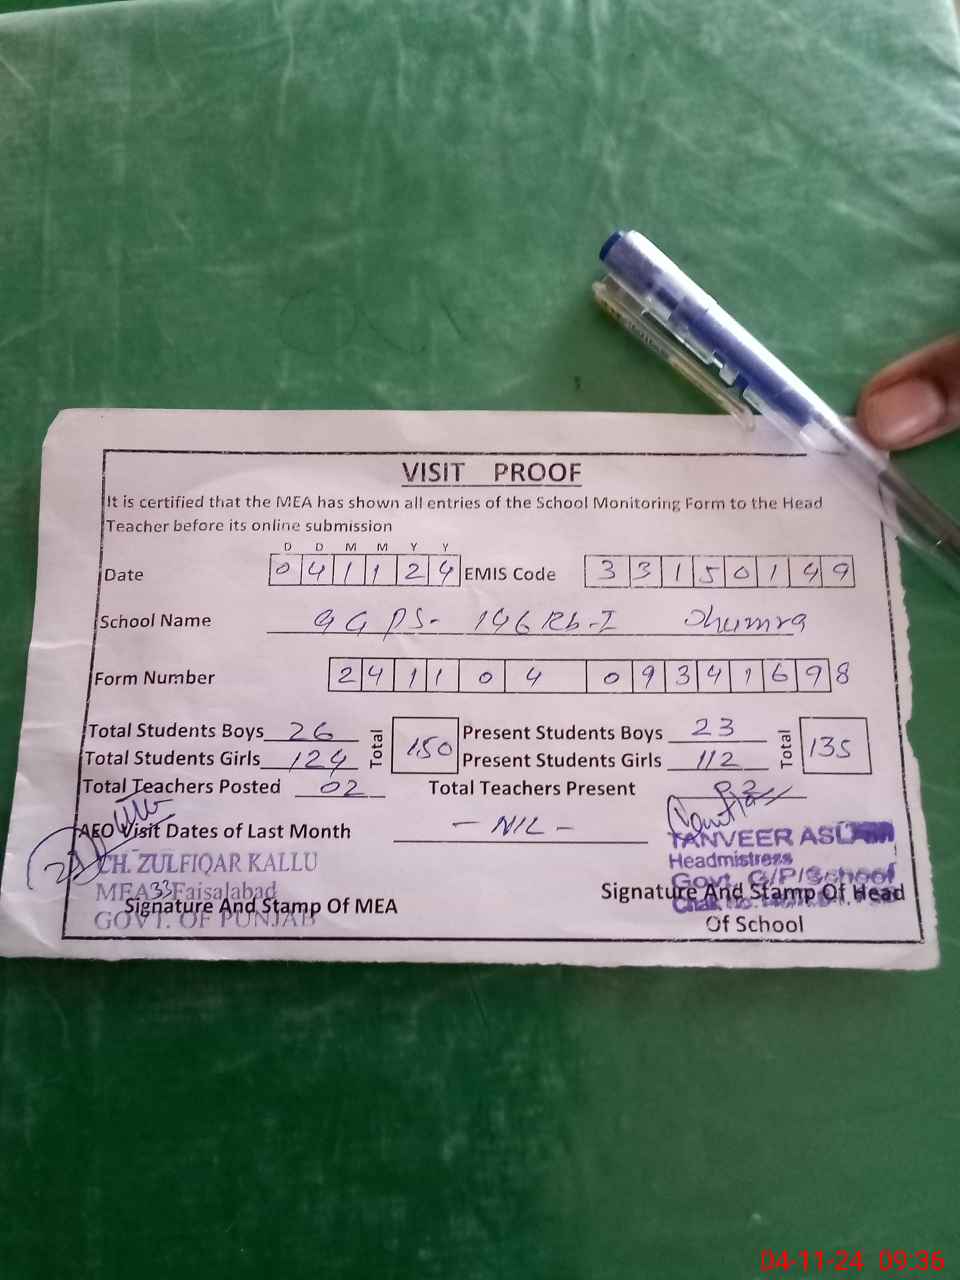 VISIT PROOF
It is certified that the MEA has shown all entries of the School Monitoring Form to the Head
Teacher before its online submission
D D M M Y Y
Date 0 4 1 1 2 4 EMIS Code 3 3 1 5 0 1 4 9
School Name GGPS- 196 Rb-I Dhumra
Form Number 2 4 1 1 0 4 0 9 3 4 1 6 9 8
Total Students Boys 26 Total 150 Present Students Boys 23 Total 135
Total Students Girls 124 Present Students Girls 112
Total Teachers Posted 02 Total Teachers Present 02
AEO Visit Dates of Last Month - NIL -
TANVEER
CH. ZULFIQAR KALLU
Headmistress
MEA 33 Faisalabad
Govt. G/P/School
Signature And Stamp Of MEA
Signature And Stamp Of Head
GOVT. OF PUNJAB
Chak No.
Of School
04-11-24 09:36